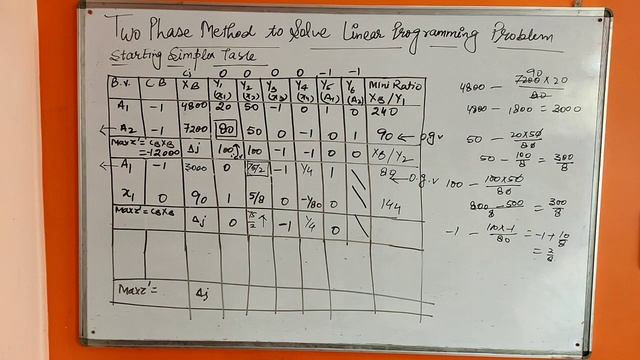 Two Phase Method to Solve Linear Programming Problem
Starting Simplex Table
Cj 0 0 0 0 -1 -1
B.V. CB XB Y1 (x1) Y2 (x2) Y3 (x3) Y4 (x4) Y5 (A1) Y6 (A2) Mini Ratio XB/Y1
A1 -1 4800 20 50 -1 0 1 0 240
← A2 -1 7200 80 50 0 -1 0 1 90 ← o.g.v
Max z' = CBXB = -12000 Δj 100↑ 100 -1 -1 0 0 XB/Y2
← A1 -1 3000 0 75/2 -1 1/4 1 80 ← o.g.v
x1 0 90 1 5/8 0 -1/80 0 144
Max z' = CBXB Δj 0 75/2 ↑ -1 1/4 0
Max z' = Δj
4800 - 7200 x 20 / 80
90
4800 - 1800 = 3000
50 - 20x50 / 80
50 - 100/8 = 300/8
100 - 100x50 / 80
800 - 500 / 8 = 300/8
-1 - 100x-1 / 80 = -1 + 10/8
= 2/8